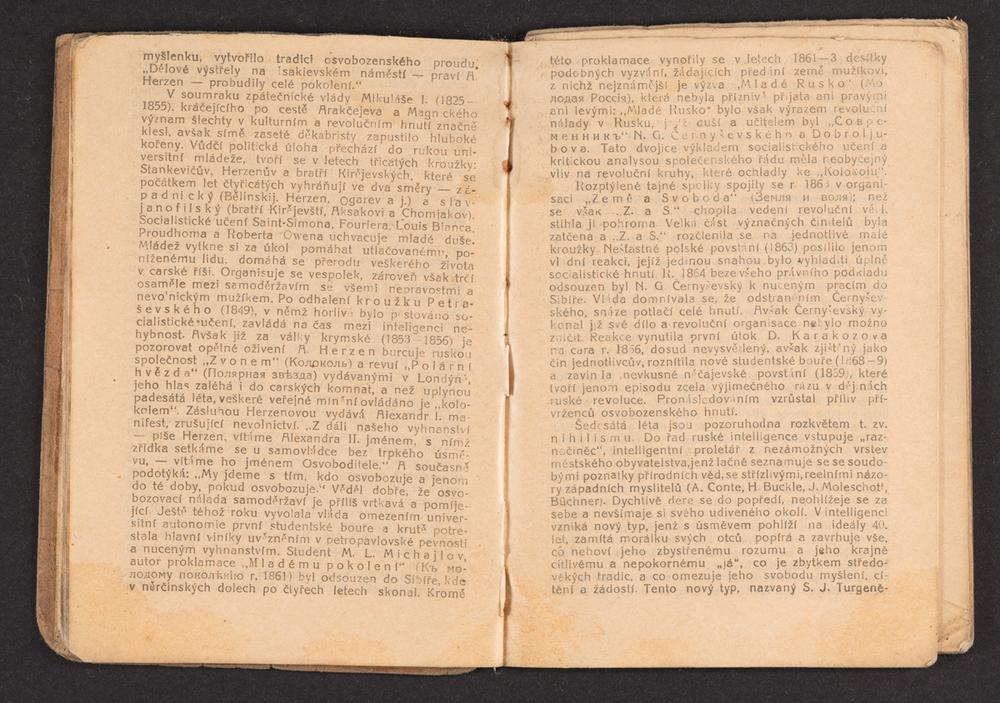 myšlenku, vytvořilo tradici osvobozenského proudu.
„Dělové výstřely na Isakievském náměstí — praví A.
Herzen — probudily celé pokolení.“
V soumraku zpátečnické vlády Mikuláše I. (1825–
1855), kráčejícího po cestě Arakčejeva a Magnického
význam šlechty v kulturním a revolučním hnutí značně
klesl, avšak símě zaseté děkabristy zapustilo hluboké
kořeny. Vůdčí politická úloha přechází do rukou uni-
versitní mládeže, tvoří se v letech třicátých kroužky:
Stankevičův, Herzenův a bratří Kirějevských, které se
počátkem let čtyřicátých vyhráňují ve dva směry — zá-
padnický (Bělinskij, Herzen, Ogarev a j.) a slav-
janofilský (bratří Kirějevští, Aksakovi a Chomjakov).
Socialistické učení Saint-Simona, Fouriera, Louis Blanca,
Proudhoma a Roberta Owena uchvacuje mladé duše.
Mládež vytkne si za úkol pomáhat utlačovanému, po-
níženému lidu, domáhá se přerodu veškerého života
v carské říši. Organisuje se vespolek, zároveň však trčí
osaměle mezi samoděržavím se všemi nepravostmi a
nevolnickým mužíkem. Po odhalení kroužku Petra-
ševského (1849), v němž horlivě bylo pěstováno so-
cialistické učení, zavládá na čas mezi inteligencí ne-
hybnost. Avšak již za války krymské (1853—1856) je
pozorovat opětné oživení A. Herzen burcuje ruskou
společnost „Zvonem“ (Колоколъ) a revuí „Polární
hvězda“ (Полярная звѣзда) vydávanými v Londýně,
jeho hlas zaléhá i do carských komnat, a než uplynou
padesátá léta, veškeré veřejné mínění ovládáno je „kolo-
kolem“. Zásluhou Herzenovou vydává Alexandr I. ma-
nifest, zrušující nevolnictví. „Z dáli našeho vyhnanství
— píše Herzen, vítáme Alexandra II. jménem, s nímž
zřídka setkáme se u samovládce bez trpkého úsmě-
vu, — vítáme ho jménem Osvoboditele.“ A současně
podotýká: „My jdeme s tím, kdo osvobozuje a jenom
do té doby, pokud osvobozuje.“ Věděl dobře, že osvo-
bozovací nálada samoděržaví je příliš vrtkavá a pomíje-
jící. Ještě téhož roku vyvolala vláda omezením univer-
sitní autonomie první studentské bouře a krutě potre-
stala hlavní viníky uvězněním v petropavlovské pevnosti
a nuceným vyhnanstvím. Student M. L. Michajlov,
autor proklamace „Mladému pokolení“ (Къ мо-
лодому поколѣнію r. 1861) byl odsouzen do Sibíře, kde
v něrčinských dolech po čtyřech letech skonal. Kromě
této proklamace vynořily se v letech 1861—3 desítky
podobných vyzvání, žádajících předání země mužíkovi,
z nichž nejznámější je výzva „Mladé Rusko“ (Мо-
лодая Россія), která nebyla příznivě přijata ani pravými
ani levými: „Mladé Rusko“ bylo však výrazem revoluční
nálady v Rusku, jejíž duší a učitelem byl „Совре-
менникъ“ N. G. Černyševského a Dobrolju-
bova. Tato dvojice výkladem socialistického učení a
kritickou analysou společenského řádu měla neobyčejný
vliv na revoluční kruhy, které ochladly ke „Kolokolu“.
Rozptýlené tajné spolky spojily se r. 1863 v organi-
saci „Země a Svoboda“ (Земля и воля); než
se však „Z. a S.“ chopila vedení revoluční věci,
stihla ji pohroma Velká část význačných činitelů byla
zatčena a „Z. a S.“ rozčlenila se na jednotlivé malé
kroužky Nešťastné polské povstání (1863) posílilo jenom
vládní reakci, jejíž jedinou snahou bylo vyhladiti úplně
socialistické hnutí. R. 1864 beze všeho právního podkladu
odsouzen byl N. G. Černyševský k nuceným pracím do
Sibíře. Vláda domnívala se, že odstraněním Černyšev-
ského, snáze potlačí celé hnutí. Avšak Černyševský vy-
konal již své dílo a revoluční organisace nebylo možno
zničit. Reakce vynutila první útok D. Karakozova
na cara r. 1866, dosud nevysvětlený, avšak zjištěný jako
čin jednotlivcův, roznítila nové studentské bouře (1868–9)
a zavinila nevkusné něčajevské povstání (1869), které
tvoří jenom episodu zcela výjimečného rázu v dějinách
ruské revoluce. Pronásledováním vzrůstal příliv pří-
vrženců osvobozenského hnutí.
Šedesátá léta jsou pozoruhodna rozkvětem t. zv.
nihilismu. Do řad ruské intelligence vstupuje „raz-
nočiněc“, intelligentní proletář z nezámožných vrstev
městského obyvatelstva, jenž lačně seznamuje se se soudo-
bými poznatky přírodních věd, se střízlivými, reelními názo-
ry západních myslitelů (A. Conte, H. Buckle, J. Moleschot,
Büchner). Dychtivě dere se do popředí, neohlížeje se za
sebe a nevšímaje si svého udiveného okolí. V intelligenci
vzniká nový typ, jenž s úsměvem pohlíží na ideály 40.
let, zamítá morálku svých otců, popírá a zavrhuje vše,
co nehoví jeho zbystřenému rozumu a jeho krajně
citlivému a nepokornému „já“, co je zbytkem středo-
věkých tradic, a co omezuje jeho svobodu myšlení, cí-
tění a žádostí. Tento nový typ, nazvaný S. J. Turgeně-